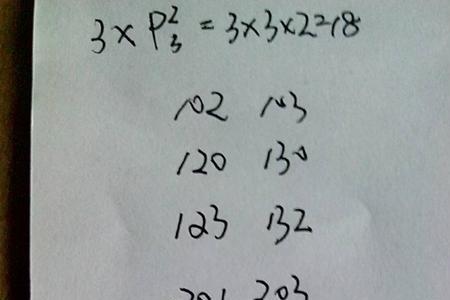 3×P²₃=3×3×2=18
102 103
120 130
123 132
201 203